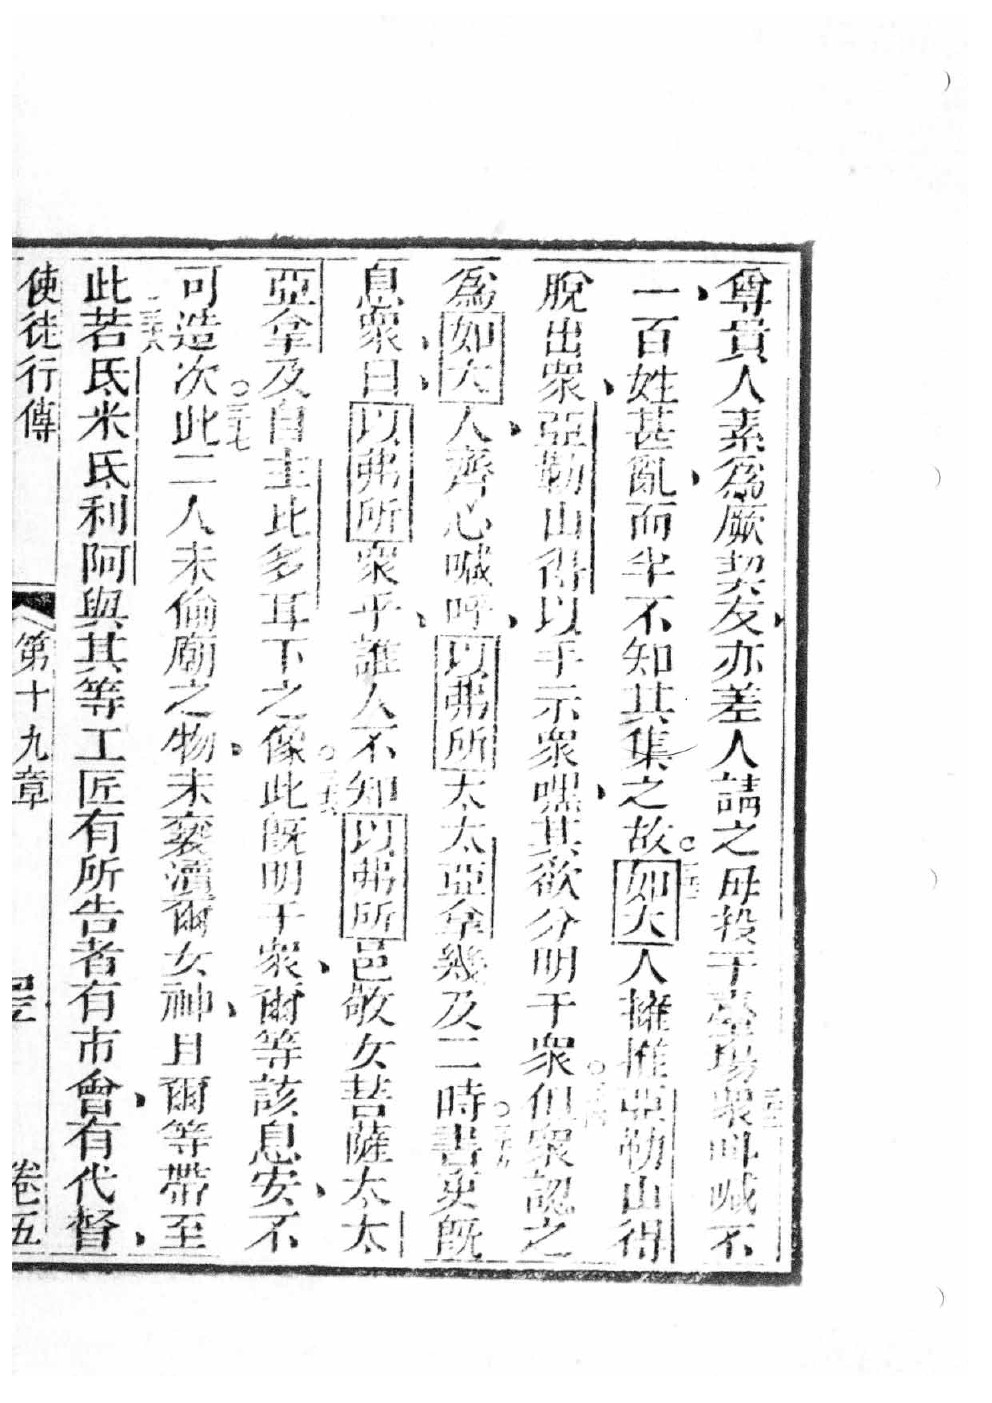 尊貴人素為厥契友亦差人請之毋投于戲場衆呌喊不
一百姓甚亂而半不知其集之故如大人擁推亞勒山得
脫出衆亞勒山得以手示衆嘿其欲分明于衆但衆認之
為如大人齊心喊呼以弗所太太亞拿幾及二時書吏既
息衆曰以弗所衆乎誰人不知以弗所邑敬女菩薩太太
亞拿及自主比多耳下之像此既明于衆爾等該息安不
可造次此二人未偷廟之物未褻瀆爾女神且爾等帶至
此若氐米氐利阿與其等工匠有所告者有市會有代督
使徒行傳 第十九章 卷五